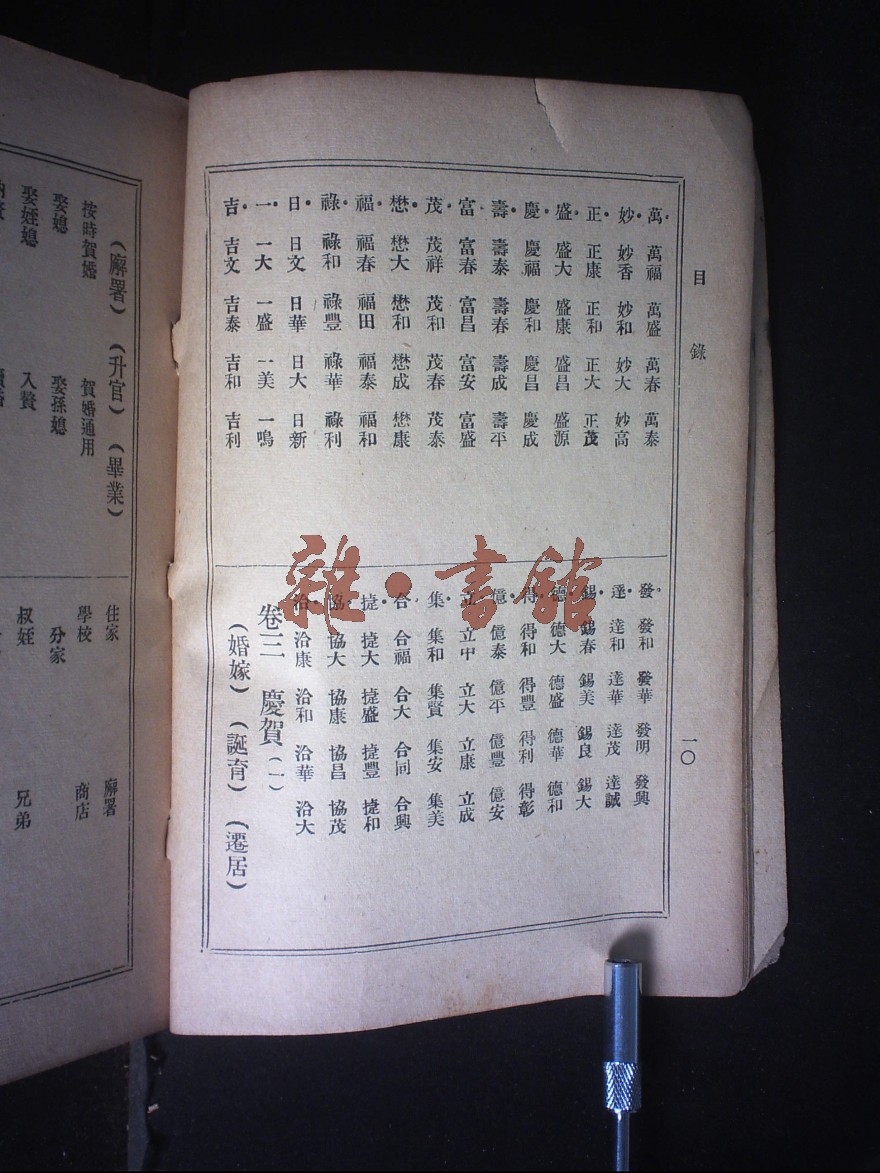 目錄
一〇
萬・ 萬福 萬盛 萬春 萬泰
妙・ 妙香 妙和 妙大 妙高
正・ 正康 正和 正大 正茂
盛・ 盛大 盛康 盛昌 盛源
慶・ 慶福 慶和 慶昌 慶成
壽・ 壽泰 壽春 壽成 壽平
富・ 富春 富昌 富安 富盛
茂・ 茂祥 茂和 茂春 茂泰
懋・ 懋大 懋和 懋成 懋康
福・ 福春 福田 福泰 福和
祿・ 祿和 祿豐 祿華 祿利
日・ 日文 日華 日大 日新
一・ 一大 一盛 一美 一鳴
吉・ 吉文 吉泰 吉和 吉利
發・ 發和 發華 發明 發興
達・ 達和 達華 達茂 達誠
錫・ 錫春 錫美 錫良 錫大
德・ 德大 德盛 德華 德和
得・ 得和 得豐 得利 得彰
億・ 億泰 億平 億豐 億安
立・ 立中 立大 立康 立成
集・ 集和 集賢 集安 集美
合・ 合福 合大 合同 合興
捷・ 捷大 捷盛 捷豐 捷和
協・ 協大 協康 協昌 協茂
洽・ 洽康 洽和 洽華 洽大
卷三 慶賀(一)
(婚嫁)(誕育)(遷居)
(廨署)(升官)(畢業)
按時賀婚 賀婚通用
娶媳 娶孫媳
娶姪媳 入贅
住家 廨署
學校 商店
分家
叔姪 兄弟
雜・書館